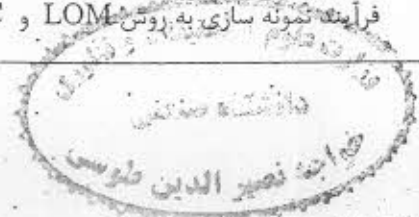 فرآیند نمونه سازی به روش LOM و
دانشگاه صنعتی
خواجه نصیر الدین طوسی